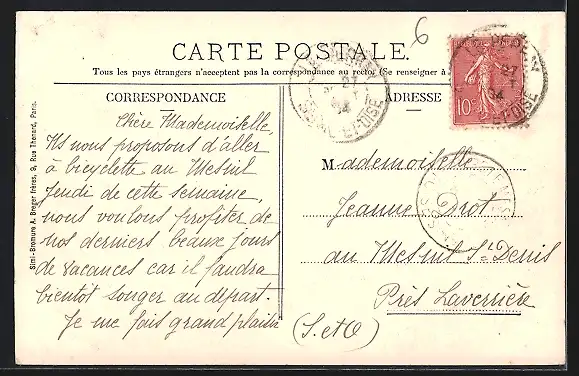 6
CARTE POSTALE.
Tous les pays étrangers n'acceptent pas la correspondance au recto (Se renseigner à
CORRESPONDANCE
ADRESSE
Chère Mademoiselle,
Ns nous proposons d'aller
à bicyclette au Mesnil
Jeudi de cette semaine,
nous voulons profiter de
nos derniers beaux jours
de vacances car il faudra
bientôt songer au départ.
Je me fais grand plaisir
Mademoiselle
Jeanne Drot
au Mesnil St Denis
Près Laverrière
(S. et O)
Simi-Bromure A. Breger frères, 9, Rue Thenard, Paris.
10c
27
04
SEINE-ET-OISE
27
04
OISE